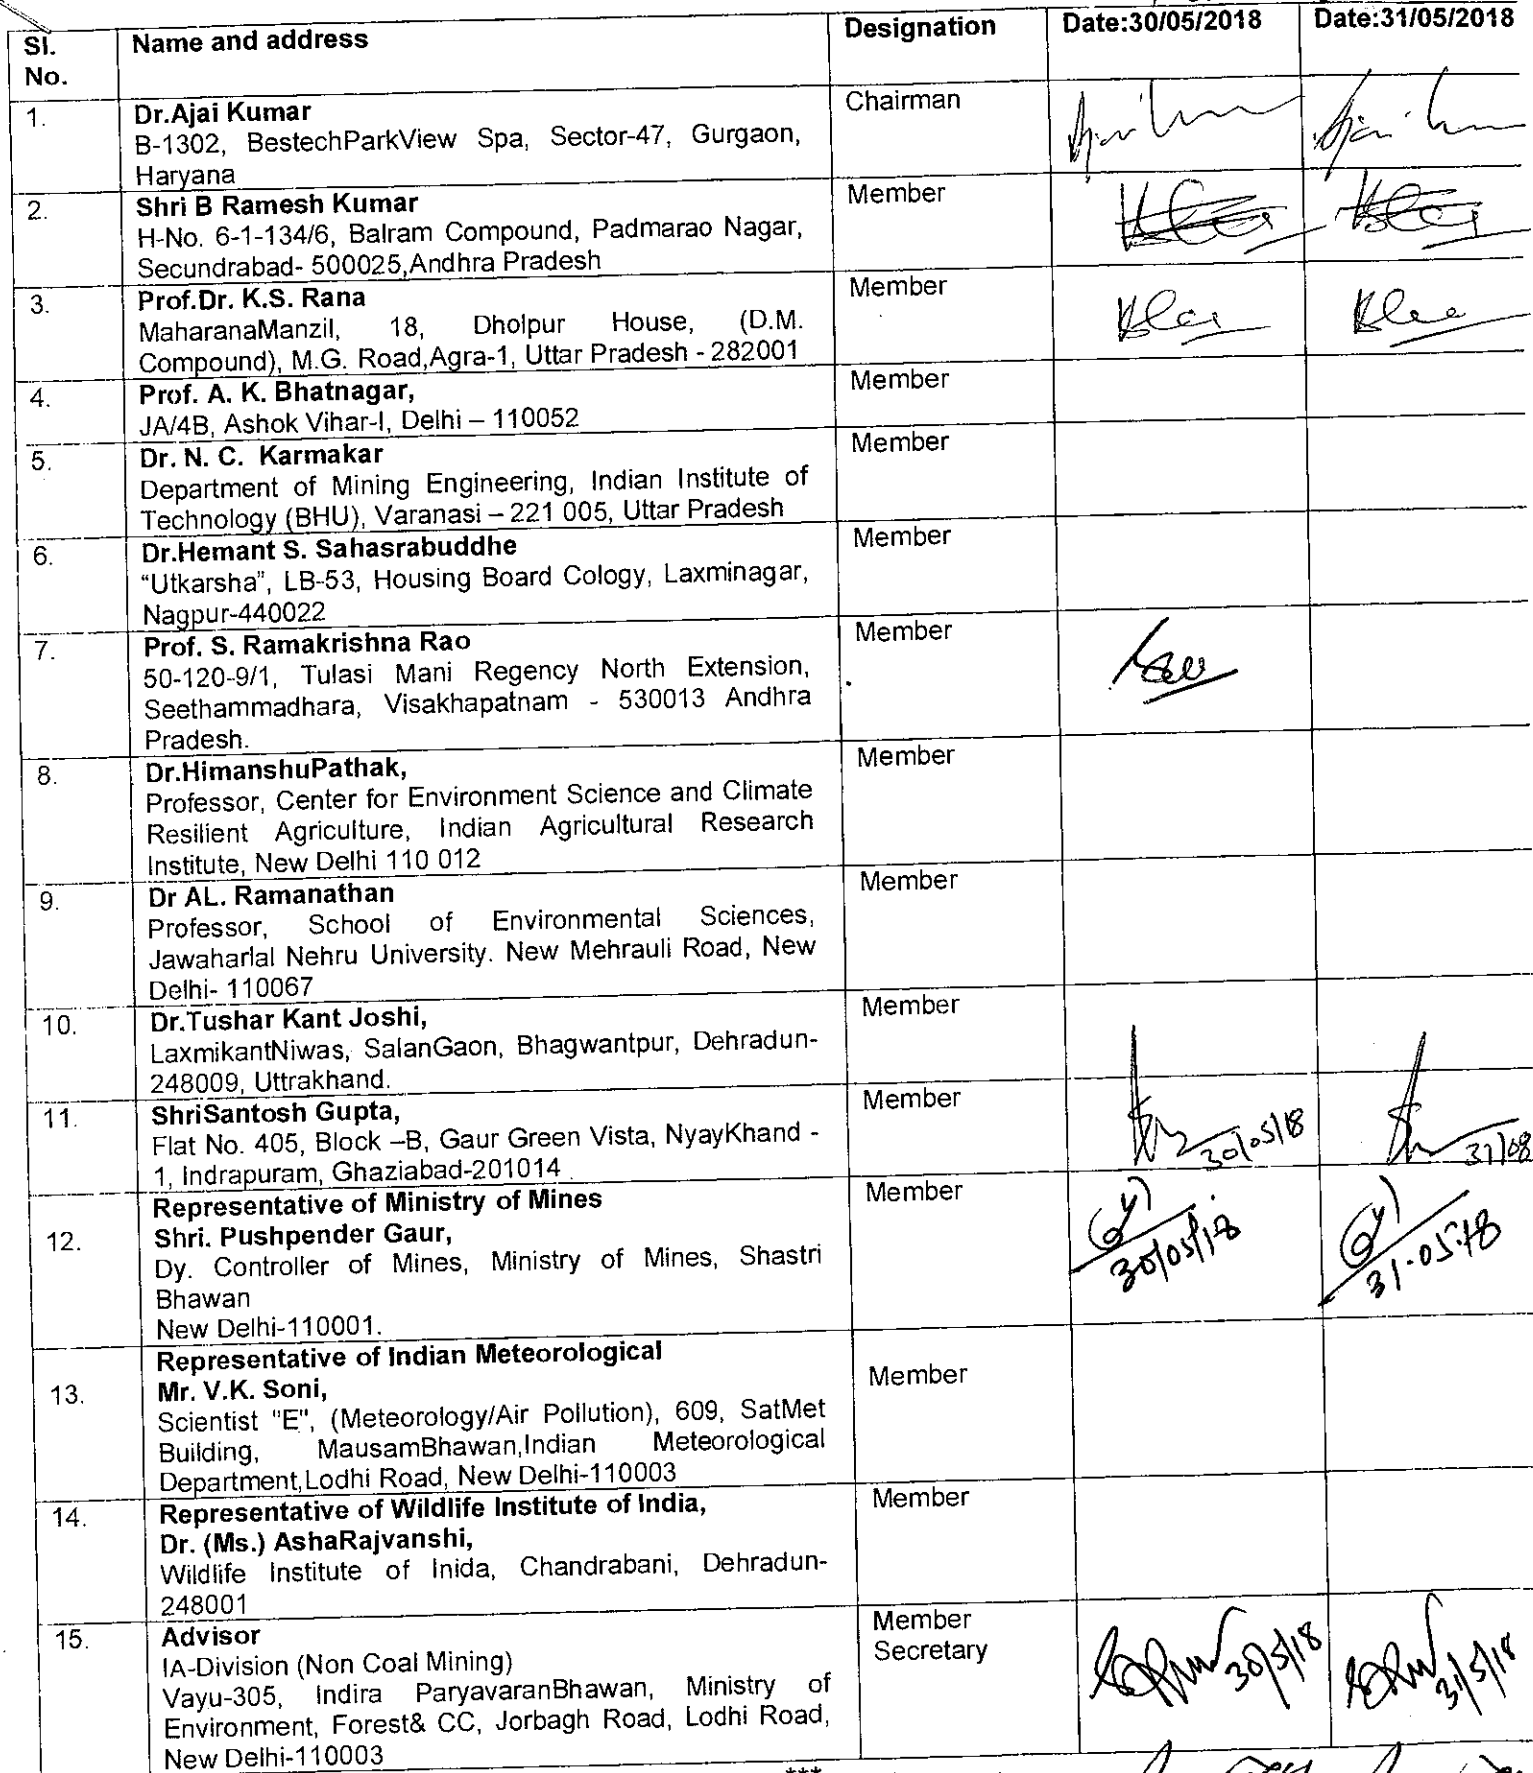 Sl. No. Name and address Designation Date:30/05/2018 Date:31/05/2018
1. Dr.Ajai Kumar Chairman
B-1302, BestechParkView Spa, Sector-47, Gurgaon,
Haryana
2. Shri B Ramesh Kumar Member
H-No. 6-1-134/6, Balram Compound, Padmarao Nagar,
Secundrabad- 500025,Andhra Pradesh
3. Prof.Dr. K.S. Rana Member
MaharanaManzil, 18, Dholpur House, (D.M.
Compound), M.G. Road,Agra-1, Uttar Pradesh - 282001
4. Prof. A. K. Bhatnagar, Member
JA/4B, Ashok Vihar-I, Delhi – 110052
5. Dr. N. C. Karmakar Member
Department of Mining Engineering, Indian Institute of
Technology (BHU), Varanasi – 221 005, Uttar Pradesh
6. Dr.Hemant S. Sahasrabuddhe Member
“Utkarsha”, LB-53, Housing Board Cology, Laxminagar,
Nagpur-440022
7. Prof. S. Ramakrishna Rao Member
50-120-9/1, Tulasi Mani Regency North Extension,
Seethammadhara, Visakhapatnam - 530013 Andhra
Pradesh.
8. Dr.HimanshuPathak, Member
Professor, Center for Environment Science and Climate
Resilient Agriculture, Indian Agricultural Research
Institute, New Delhi 110 012
9. Dr AL. Ramanathan Member
Professor, School of Environmental Sciences,
Jawaharlal Nehru University. New Mehrauli Road, New
Delhi- 110067
10. Dr.Tushar Kant Joshi, Member
LaxmikantNiwas, SalanGaon, Bhagwantpur, Dehradun-
248009, Uttrakhand.
11. ShriSantosh Gupta, Member
Flat No. 405, Block –B, Gaur Green Vista, NyayKhand -
1, Indrapuram, Ghaziabad-201014
30/05/18
Representative of Ministry of Mines Member
12. Shri. Pushpender Gaur,
Dy. Controller of Mines, Ministry of Mines, Shastri
Bhawan
New Delhi-110001.
30/05/18 31.05.18
Representative of Indian Meteorological
13. Mr. V.K. Soni, Member
Scientist "E", (Meteorology/Air Pollution), 609, SatMet
Building, MausamBhawan,Indian Meteorological
Department,Lodhi Road, New Delhi-110003
14. Representative of Wildlife Institute of India, Member
Dr. (Ms.) AshaRajvanshi,
Wildlife Institute of Inida, Chandrabani, Dehradun-
248001
15. Advisor Member Secretary 30/5/18 31/5/18
IA-Division (Non Coal Mining)
Vayu-305, Indira ParyavaranBhawan, Ministry of
Environment, Forest& CC, Jorbagh Road, Lodhi Road,
New Delhi-110003
***